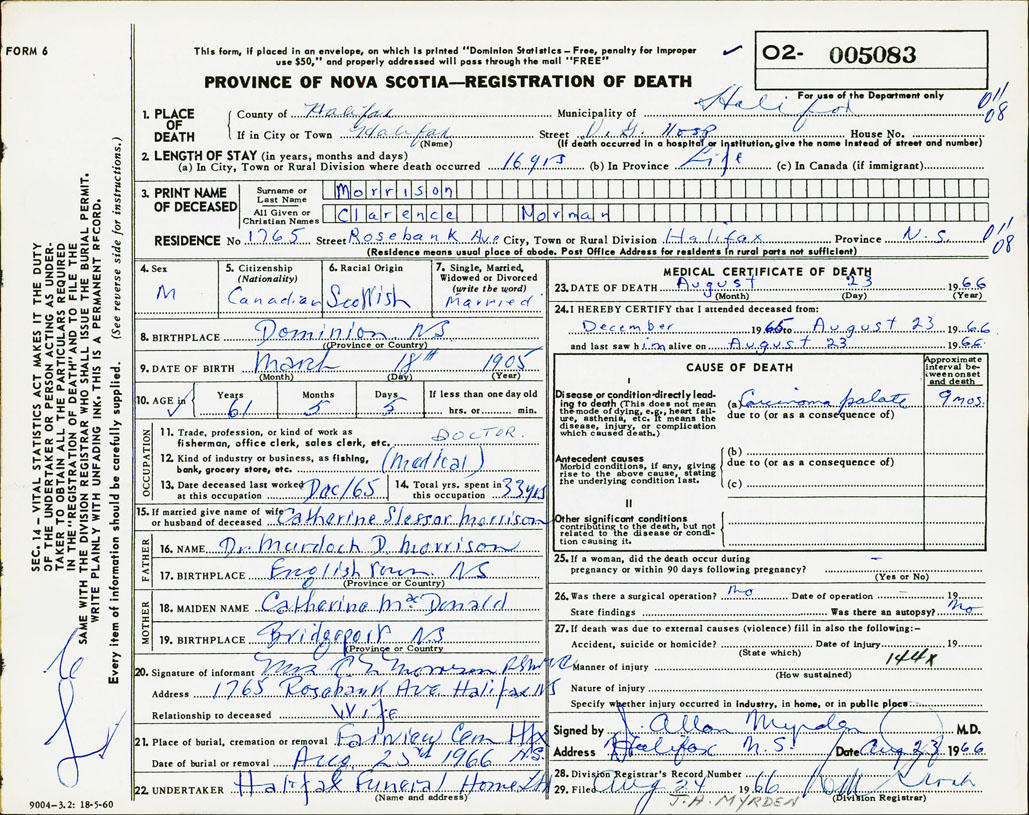 FORM 6
This form, if placed in an envelope, on which is printed "Dominion Statistics – Free, penalty for improper
use $50," and properly addressed will pass through the mail "FREE"
02- 005083
For use of the Department only
PROVINCE OF NOVA SCOTIA—REGISTRATION OF DEATH
011/08
1. PLACE OF DEATH
County of Halifax Municipality of Halifax
If in City or Town Halifax (Name) Street V. G. Hosp House No.
(If death occurred in a hospital or institution, give the name instead of street and number)
2. LENGTH OF STAY (in years, months and days)
(a) In City, Town or Rural Division where death occurred 16 yrs (b) In Province Life (c) In Canada (if immigrant)
3. PRINT NAME OF DECEASED
Surname or Last Name Morrison
All Given or Christian Names Clarence Norman
RESIDENCE No 1765 Street Rosebank Ave City, Town or Rural Division Halifax Province N.S. 011/08
(Residence means usual place of abode. Post Office Address for residents in rural parts not sufficient)
4. Sex M
5. Citizenship (Nationality) Canadian
6. Racial Origin Scottish
7. Single, Married, Widowed or Divorced (write the word) Married
8. BIRTHPLACE Dominion NS
(Province or Country)
9. DATE OF BIRTH March 18th 1905
(Month) (Day) (Year)
10. AGE in Years 61 Months 5 Days 5 If less than one day old hrs. or min.
OCCUPATION
11. Trade, profession, or kind of work as fisherman, office clerk, sales clerk, etc. DOCTOR.
12. Kind of industry or business, as fishing, bank, grocery store, etc. (Medical)
13. Date deceased last worked at this occupation Dec/65
14. Total yrs. spent in this occupation 33 yrs
15. If married give name of wife or husband of deceased Catherine Slessor Morrison
FATHER
16. NAME Dr. Murdoch D. Morrison
17. BIRTHPLACE English Town NS
(Province or Country)
MOTHER
18. MAIDEN NAME Catherine MacDonald
19. BIRTHPLACE Bridgeport NS
(Province or Country)
20. Signature of informant Mrs Morrison
Address 1765 Rosebank Ave Halifax NS
Relationship to deceased Wife
21. Place of burial, cremation or removal Fairview Cem Hfx N.S.
Date of burial or removal Aug. 25th 1966
22. UNDERTAKER Halifax Funeral Home Ltd
(Name and address)
MEDICAL CERTIFICATE OF DEATH
23. DATE OF DEATH August 23 1966
(Month) (Day) (Year)
24. I HEREBY CERTIFY that I attended deceased from:
December 1965 to August 23 1966
and last saw him alive on August 23 1966
CAUSE OF DEATH
Approximate interval between onset and death
I
Disease or condition directly leading to death (This does not mean the mode of dying, e.g., heart failure, asthenia, etc. It means the disease, injury, or complication which caused death.)
(a) Carcinoma palate 9 mos.
due to (or as a consequence of)
Antecedent causes
Morbid conditions, if any, giving rise to the above cause, stating the underlying condition last.
(b)
due to (or as a consequence of)
(c)
II
Other significant conditions
contributing to the death, but not related to the disease or condition causing it.
25. If a woman, did the death occur during pregnancy or within 90 days following pregnancy? –
(Yes or No)
26. Was there a surgical operation? No Date of operation – 19
State findings Was there an autopsy? No
27. If death was due to external causes (violence) fill in also the following:–
Accident, suicide or homicide? Date of injury 19
(State which)
144X
Manner of injury
(How sustained)
Nature of injury
Specify whether injury occurred in industry, in home, or in public place
Signed by J. Allan Myrden M.D.
Address Halifax N.S. Date Aug 23 1966
28. Division Registrar's Record Number
29. Filed Aug 24 1966
(Division Registrar)
J.A. MYRDEN
SEC. 14 – VITAL STATISTICS ACT MAKES IT THE DUTY
OF THE UNDERTAKER OR PERSON ACTING AS UNDER-
TAKER TO OBTAIN ALL THE PARTICULARS REQUIRED
IN THE "REGISTRATION OF DEATH" AND TO FILE THE
SAME WITH THE DIVISION REGISTRAR WHO SHALL ISSUE THE BURIAL PERMIT.
WRITE PLAINLY WITH UNFADING INK. THIS IS A PERMANENT RECORD.
Every item of information should be carefully supplied. (See reverse side for instructions.)
9004–3.2: 18-5-60